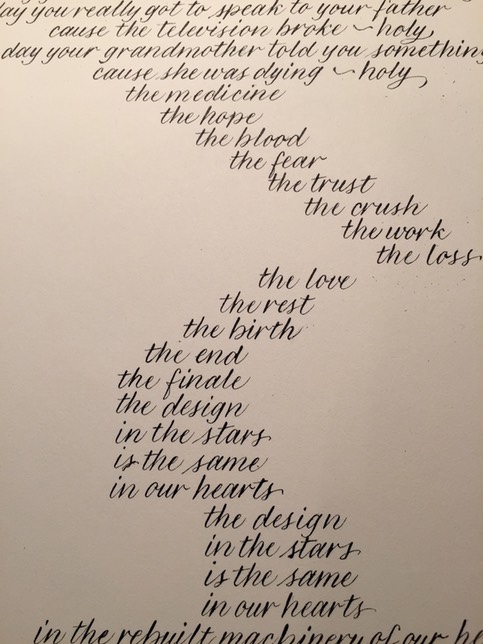 day you really got to speak to your father
cause the television broke ~ holy
day your grandmother told you something
cause she was dying ~ holy
the medicine
the hope
the blood
the fear
the trust
the crush
the work
the loss
the love
the rest
the birth
the end
the finale
the design
in the stars
is the same
in our hearts
the design
in the stars
is the same
in our hearts
in the rebuilt machinery of our